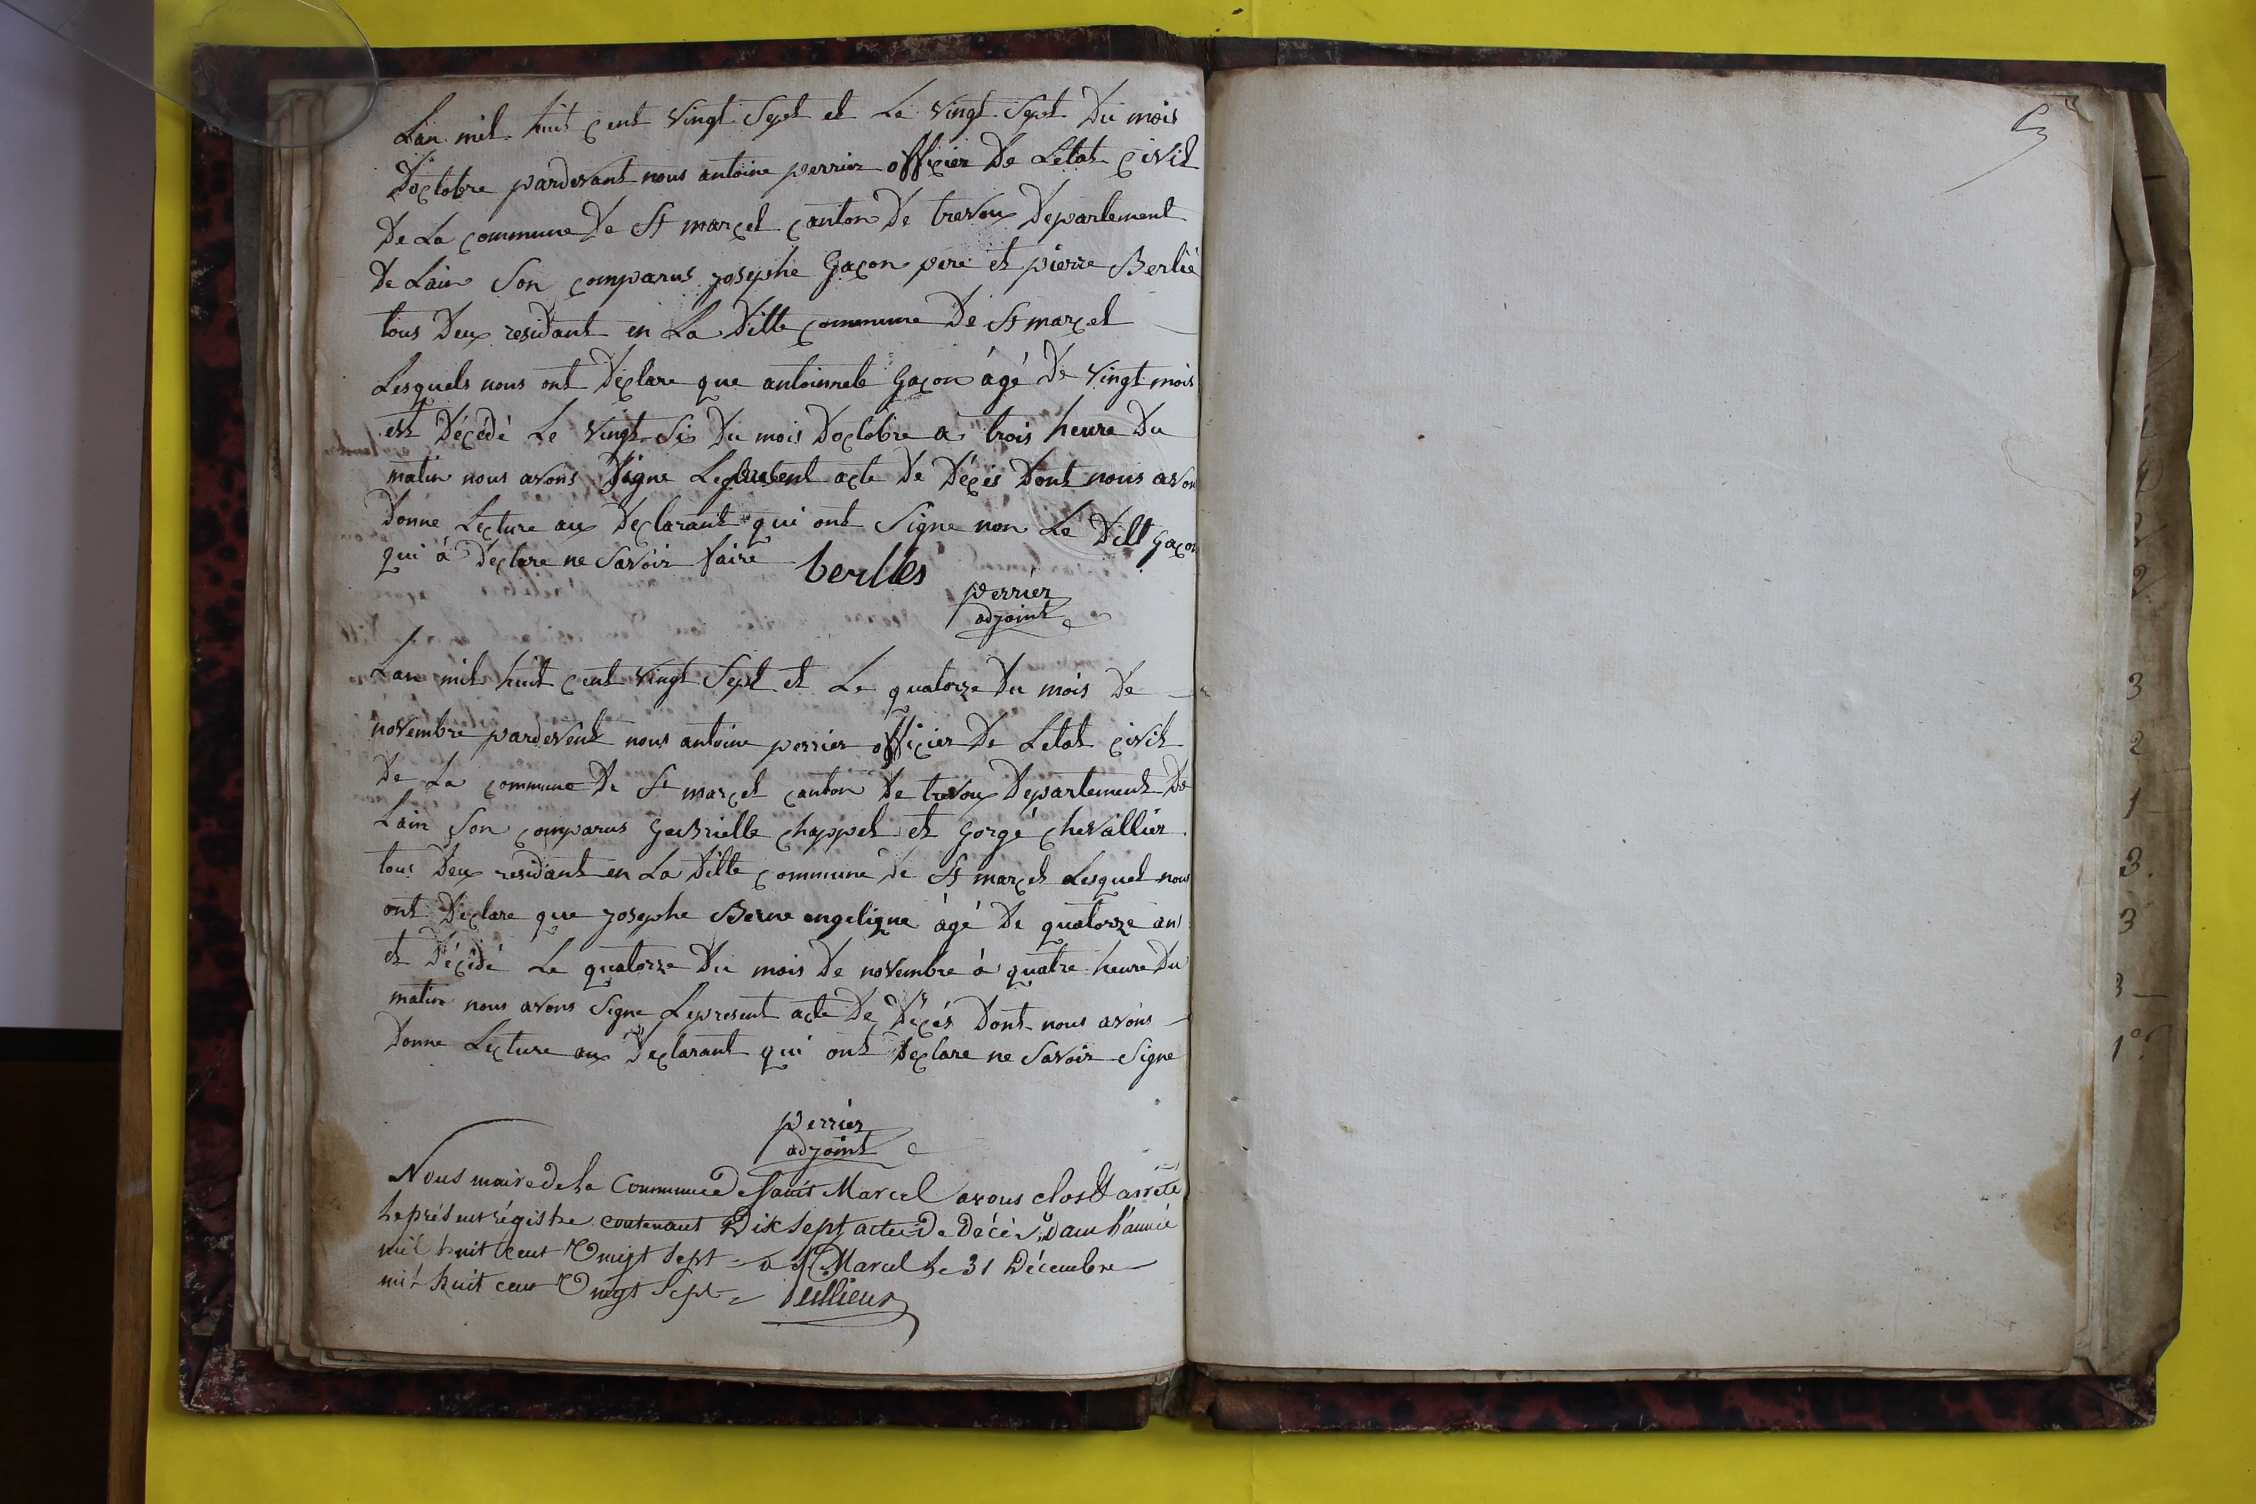 Lan mil huit cent vingt Sept et Le vingt Sept Du mois
Doctobre pardevant nous antoine perrier officier De Letat civil
De La commune De St marcel canton De trevoux Departement
De Lain Son comparus josephe Gacon pere et pierre Berlié
tous Deux residant en La Ditte commune De St marcel
Lesquels nous ont Declare que antoinnete Gacon ágé De vingt mois
est Décédé Le vingt Six Du mois Doctobre a trois heure Du
matin nous avons Signe Le present acte De Décés Dont nous avon
Donne Lecture aux Declarant qui ont Signe non Le Ditt Gacon
qui á Declare ne Savoir faire berlies
perrier
adjoint
Lan mil huit cent vingt Sept et Le quatorze Du mois De
novembre pardevent nous antoine perrier officier De Letat civil
De La commune De St marcel canton De trevoux Departement De
Lain Son comparus Gabrielle chappel et Gorgé chevallier
tous Deux residant en La Ditte commune De St marcel Lesquel nous
ont Declare que josephe Berne engelique ágé De quatorze an
et Décédé Le quatorze Du mois De novembre á quatre heure Du
matin nous avons Signe Le present acte De Décés Dont nous avons
Donne Lecture aux Declarant qui ont Declare ne Savoir Signe
perrier
adjoint
Nous maire de la Commune de Saint Marcel avons clos et arrêté
le présent régistre contenant Dix sept actes De Décès, Dans l'année
mil huit cent Vingt sept = a St Marcel le 31 Décembre
mil huit cent Vingt Sept =
3
2
1
3.
3
3